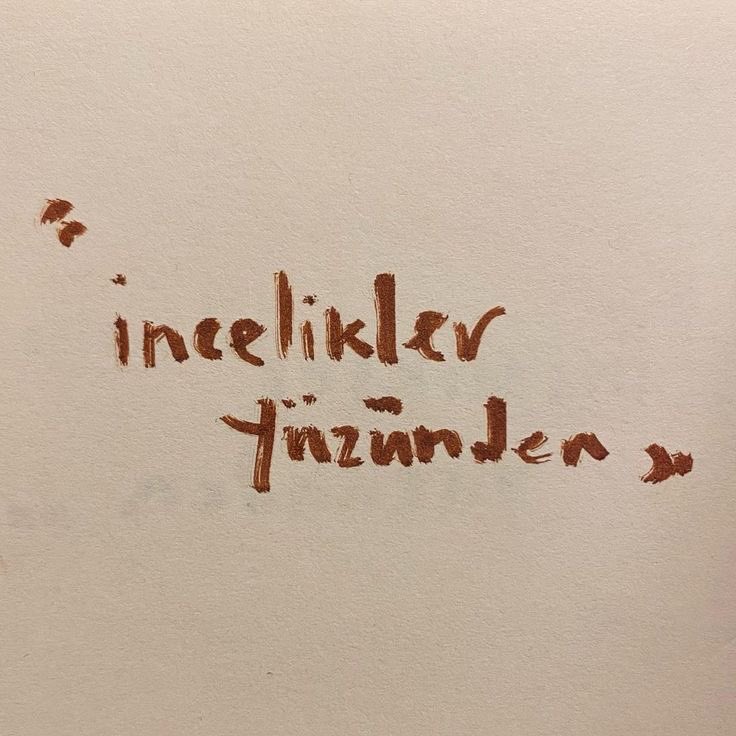 “incelikler
yüzünden”